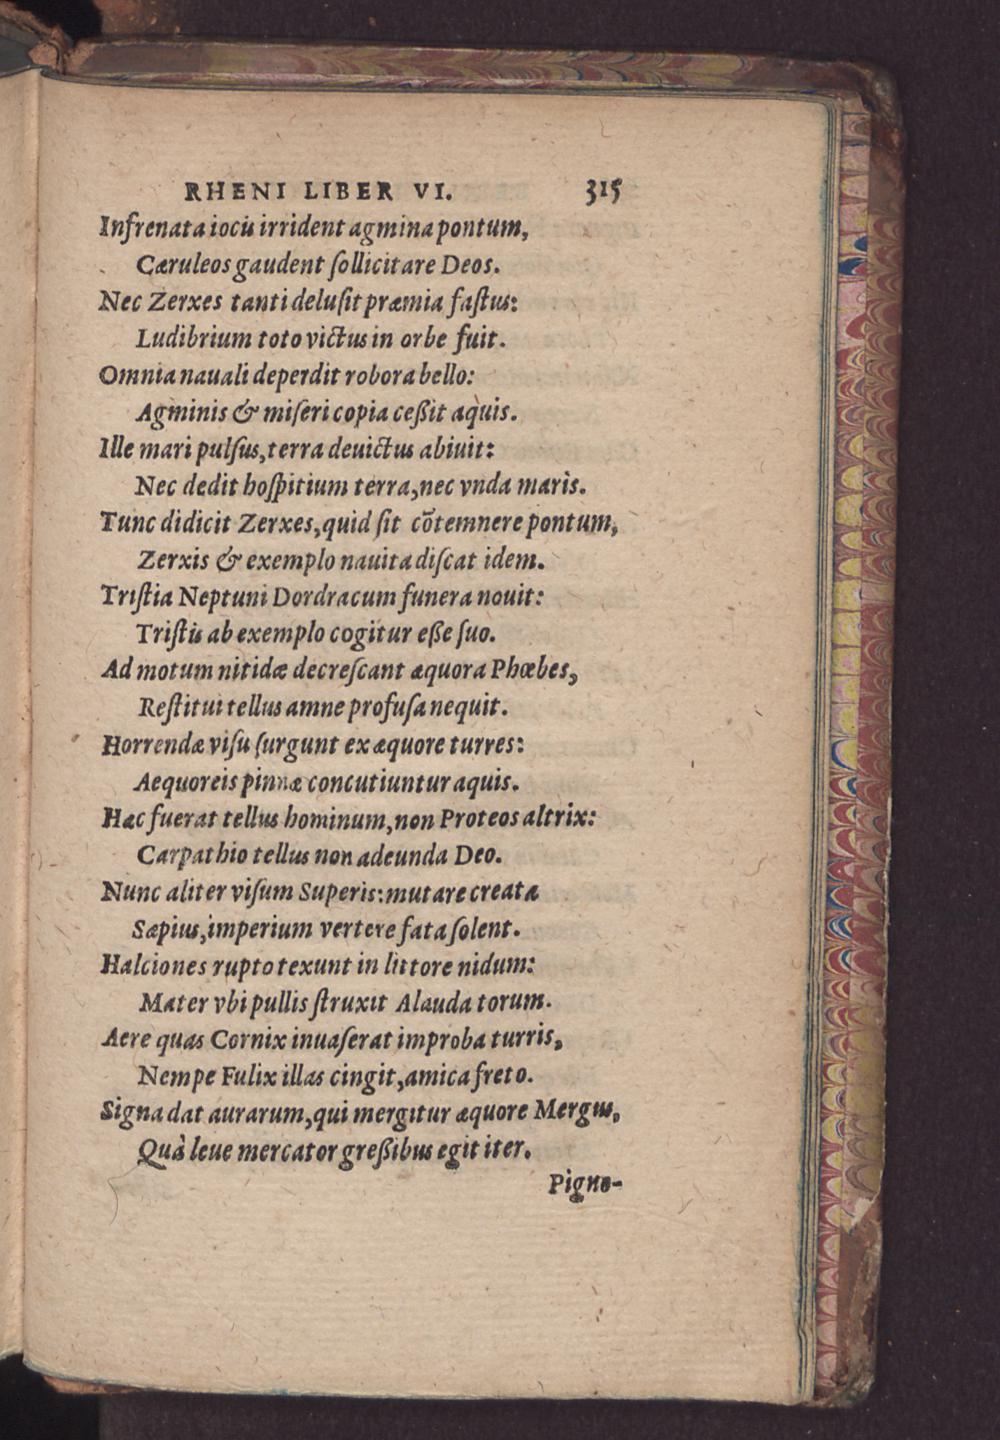 RHENI LIBER VI. 315
Infrenata iocis irrident agmina pontum,
Cæruleos gaudent ſollicitare Deos.
Nec Zerxes tanti deluſit præmia faſtus:
Ludibrium toto victus in orbe fuit.
Omnia nauali deperdit robora bello:
Agminis & miſeri copia ceßit aquis.
Ille mari pulſus, terra deuictus abiuit:
Nec dedit hoſpitium terra, nec vnda maris.
Tunc didicit Zerxes, quid ſit cõtemnere pontum,
Zerxis & exemplo nauita diſcat idem.
Triſtia Neptuni Dordracum funera nouit:
Triſtis ab exemplo cogitur eße ſuo.
Ad motum nitidæ decreſcant æquora Phœbes,
Reſtitui tellus amne profuſa nequit.
Horrendæ viſu ſurgunt ex æquore turres:
Aequoreis pinnæ concutiuntur aquis.
Hæc fuerat tellus hominum, non Proteos altrix:
Carpathio tellus non adeunda Deo.
Nunc aliter viſum Superis: mutare creata
Sæpius, imperium vertere fata ſolent.
Halciones rupto texunt in littore nidum:
Mater vbi pullis ſtruxit Alauda torum.
Aere quas Cornix inuaſerat improba turris,
Nempe Fulix illas cingit, amica freto.
Signa dat aurarum, qui mergitur æquore Mergus,
Quà leue mercator greßibus egit iter.
Pigno-